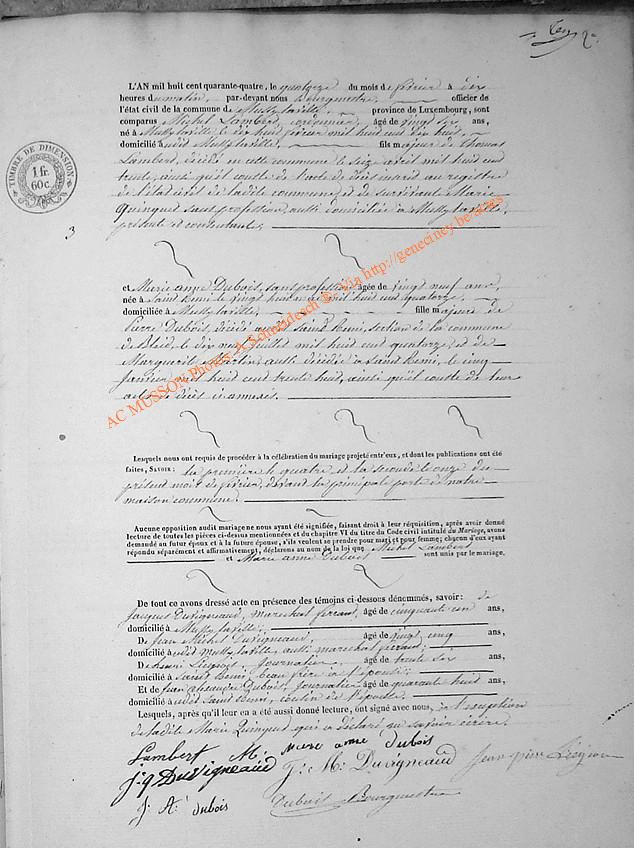 L'AN mil huit cent quarante-quatre, le quatorze du mois de février à dix
heures du matin, par-devant nous Bourguemestre, officier de
l'état civil de la commune de Mussy laville, province de Luxembourg, sont
comparus Michel Lambert, cordonnier, âgé de vingt six ans,
né à Mussy laville le dix huit février mil huit cent dix huit,
domicilié audit Mussy laville, fils majeur de Thomas
Lambert, décédé en cette commune le seize avril mil huit cent
trente, ainsi qu'il conste de l'acte de décès inscrit au registre
de l'état civil de ladite commune, et de survivante Marie
Quinquet sans profession, aussi domiciliée à Mussy laville,
présente et consentante;
TIMBRE DE DIMENSION
1 fr.
60 c.
3
et Marie anne Dubois, sans profession âgée de vingt neuf ans,
née à Saint Remi le vingt huit mil huit cent quatorze,
domiciliée à Mussy laville, fille majeure de
Pierre Dubois, décédé audit Saint Remi, section de la commune
de Bleid, le dix neuf juillet mil huit cent quatorze, et de
Marguerite Martin, aussi décédée à Saint Remi, le cinq
janvier mil huit cent trente huit, ainsi qu'il conste de leur
acte de décès ci annexés.
Lesquels nous ont requis de procéder à la célébration du mariage projeté entr'eux, et dont les publications ont été
faites, SAVOIR: la première le quatre et la seconde le onze du
présent mois de février, devant la principale porte de notre
maison commune;
Aucune opposition audit mariage ne nous ayant été signifiée, faisant droit à leur réquisition, après avoir donné
lecture de toutes les pièces ci-dessus mentionnées et du chapitre VI du titre du Code civil intitulé du Mariage, avons
demandé au futur époux et à la future épouse, s'ils veulent se prendre pour mari et pour femme; chacun d'eux ayant
répondu séparément et affirmativement, déclarons au nom de la loi que Michel Lambert
et Marie anne Dubois sont unis par le mariage.
De tout ce avons dressé acte en présence des témoins ci-dessous dénommés, savoir: de
Jacques Duvigneaud, marechal ferrant, âgé de cinquante un ans,
domicilié à Mussy laville;
De Jean Michel Duvigneaud, âgé de vingt cinq ans,
domicilié audit Mussy laville, aussi marechal ferrant;
De henri journalier, âgé de trente six ans,
domicilié à Saint Remi, beau frère à l'épouse;
Et de jean Dubois, journalier âgé de quarante huit ans,
domicilié audit Saint Remi, cousin de l'épouse.
Lesquels, après qu'il leur en a été aussi donné lecture, ont signé avec nous, à l'exception
de ladite Marie Quinquet qui a déclaré ne savoir écrire.
Lambert M. marie anne dubois
J. M. Duvigneaud
Duvigneaud
J. A. dubois
Dubois Bourguemestre
AC MUSSON Photos A Schmideisch ®. Via http://geneciney.be/actes